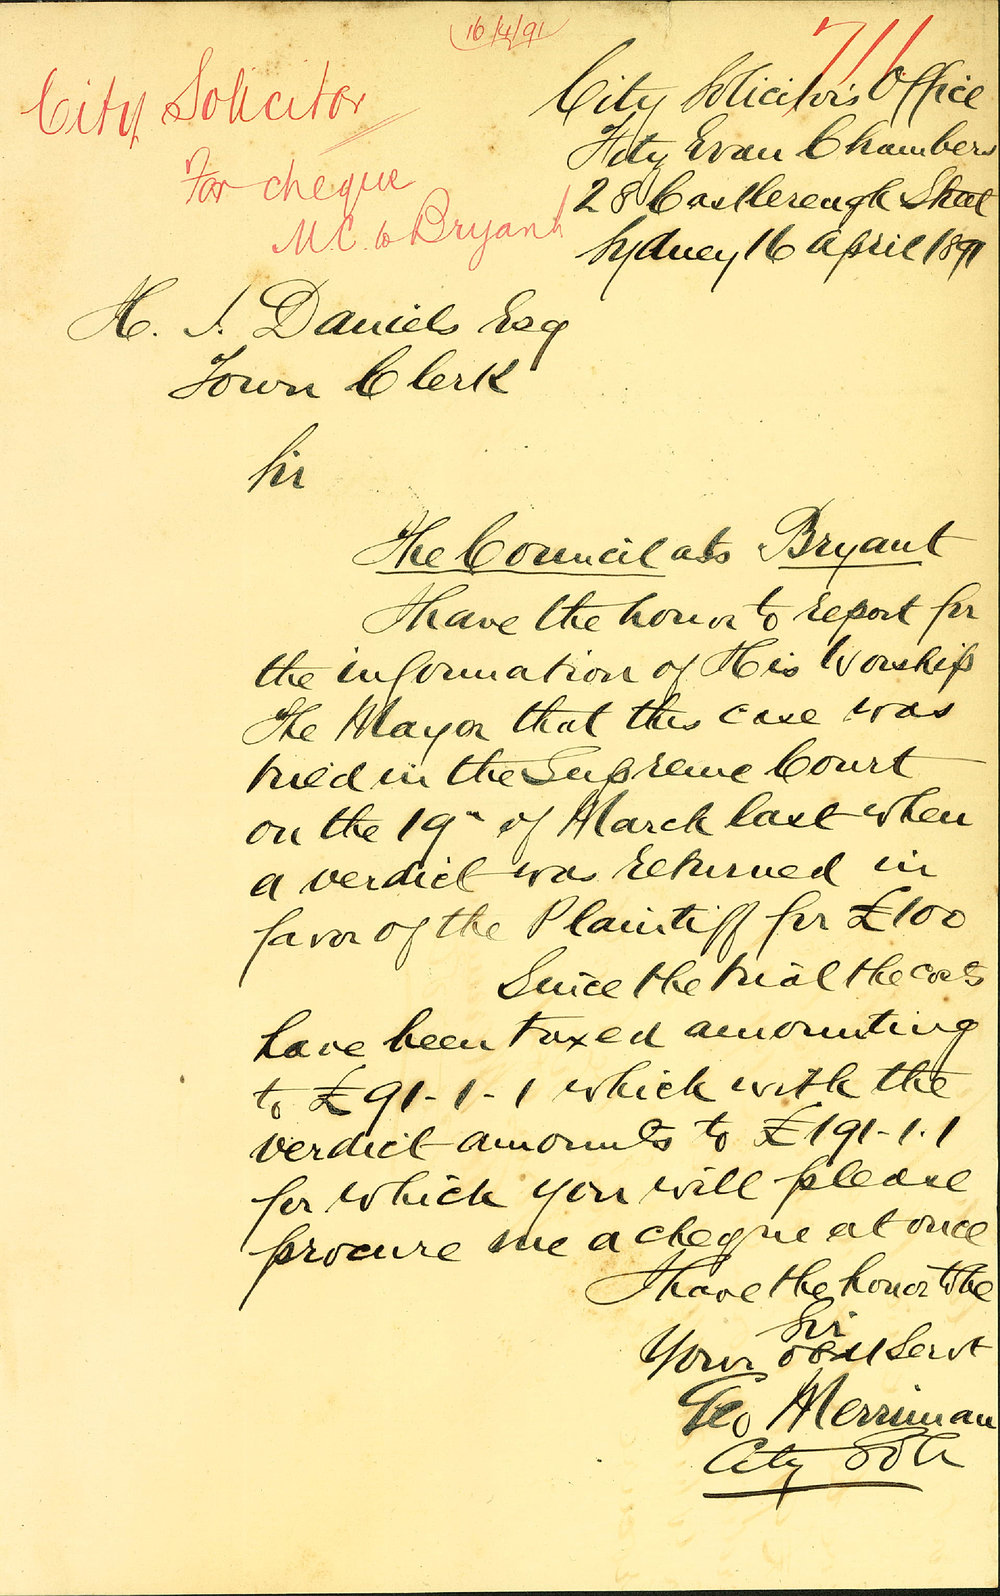 16/4/91
711
City Solicitor
For cheque
M C to Bryant
City Solicitor's Office
Fitz Evan Chambers
28 Castlereagh Street
Sydney 16 April 1891
H. J. Daniels Esq
Town Clerk
Sir
The Council ats Bryant
I have the honor to report for
the information of His Worship
The Mayor that this case was
tried in the Supreme Court
on the 19th of March last when
a verdict was returned in
favor of the Plaintiff for £100
Since the trial the costs
have been taxed amounting
to £91-1-1 which with the
verdict amounts to £191-1.1
for which you will please
procure me a cheque at once
I have the honor to be
Sir
Your obdt Servt
Geo Merriman
City Solr